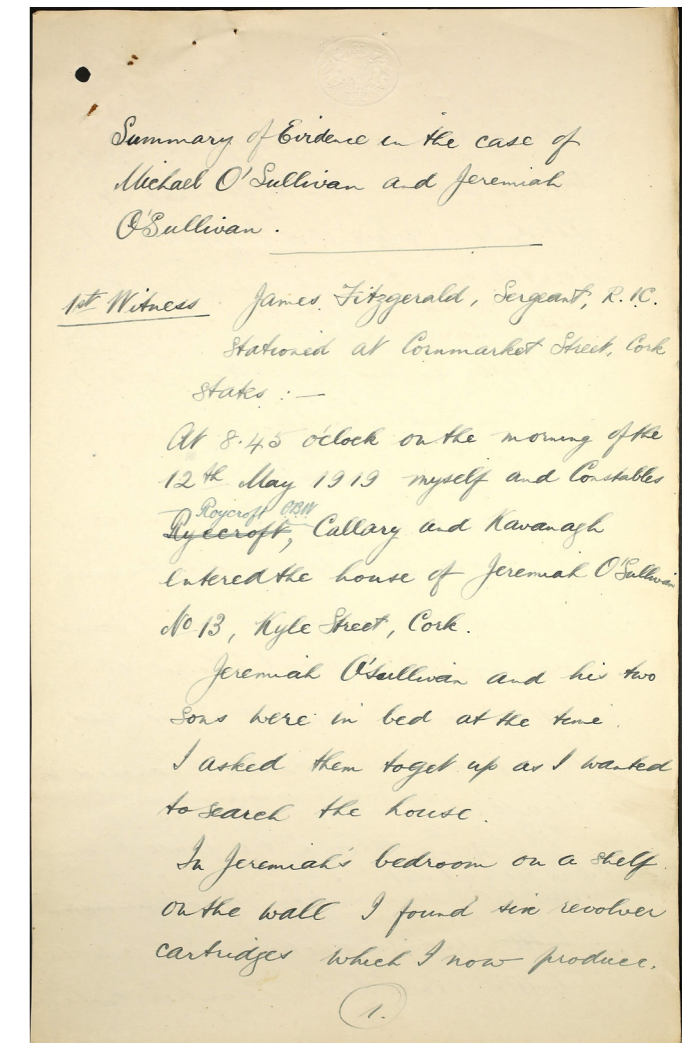 Summary of Evidence in the case of
Michael O'Sullivan and Jeremiah
O'Sullivan.
1st Witness James Fitzgerald, Sergeant, R.I.C.
stationed at Cornmarket Street, Cork
states :—
At 8.45 o'clock on the morning of the
12th May 1919 myself and Constables
Roycroft
Ryecroft, Callary and Kavanagh
entered the house of Jeremiah O'Sullivan
No 13, Kyle Street, Cork.
Jeremiah O'Sullivan and his two
sons were in bed at the time.
I asked them to get up as I wanted
to search the house.
In Jeremiah's bedroom on a shelf
on the wall I found six revolver
cartridges which I now produce.
1.